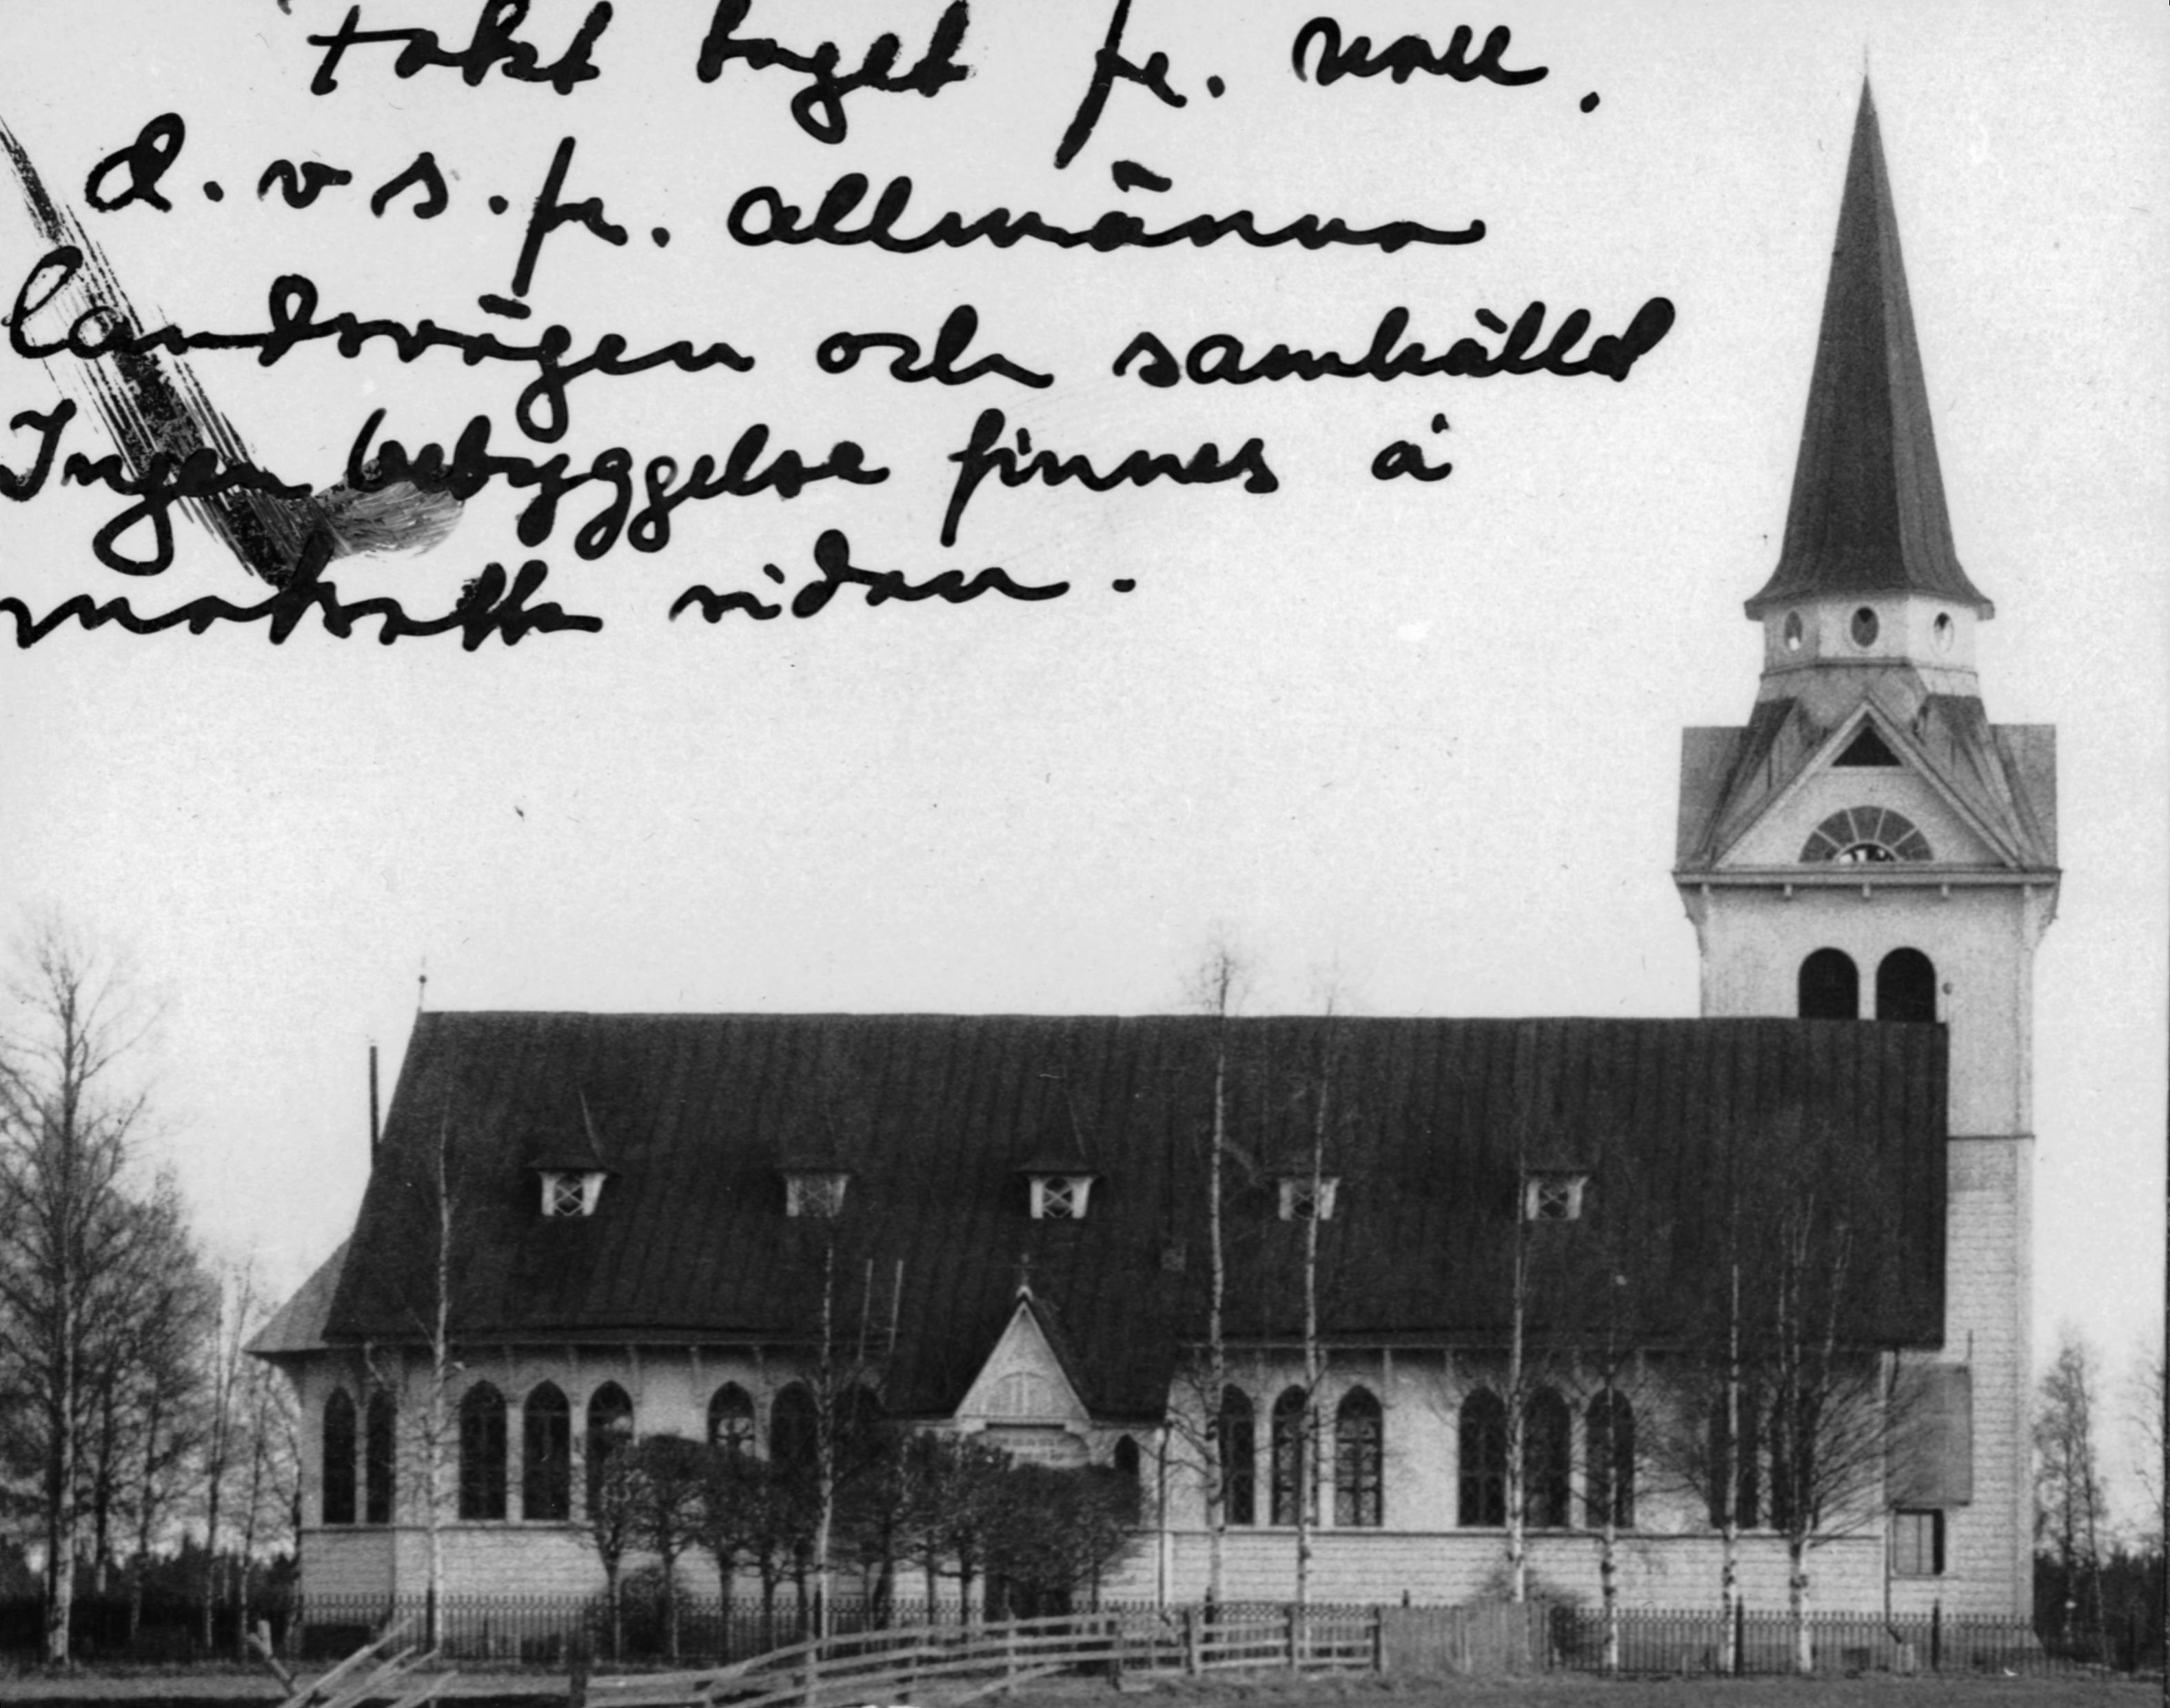 fokt taget fr. norr.
d.v.s. fr. allmänna
landsvägen och samhället
Ingen bebyggelse finnes å
motsatta sidan.